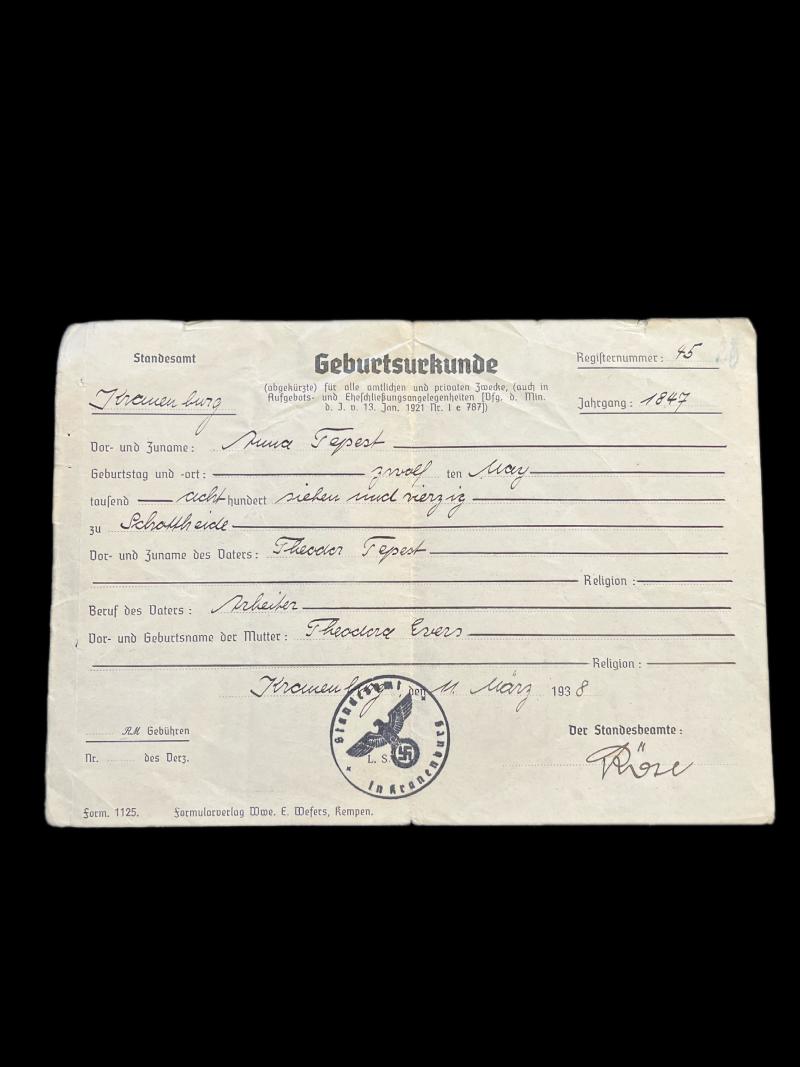 Standesamt
Kranenburg
Geburtsurkunde
(abgekürzte) für alle amtlichen und privaten Zwecke, (auch in
Aufgebots- und Eheschließungsangelegenheiten [Vfg. d. Min.
d. J. v. 13. Jan. 1921 Nr. I e 787])
Registernummer: 45
Jahrgang: 1847
Vor- und Zuname: Anna Tepest
Geburtstag und -ort: zwölf ten May
tausend acht hundert sieben und vierzig
zu Schottheide
Vor- und Zuname des Vaters: Theodor Tepest
Religion:
Beruf des Vaters: Arbeiter
Vor- und Geburtsname der Mutter: Theodora Evers
Religion:
Kranenburg, den 11. März 1938
RM Gebühren
Nr. des Verz.
L. S.
Standesamt
in Kranenburg
Der Standesbeamte:
Röse
Form. 1125. Formularverlag Wwe. E. Wefers, Kempen.